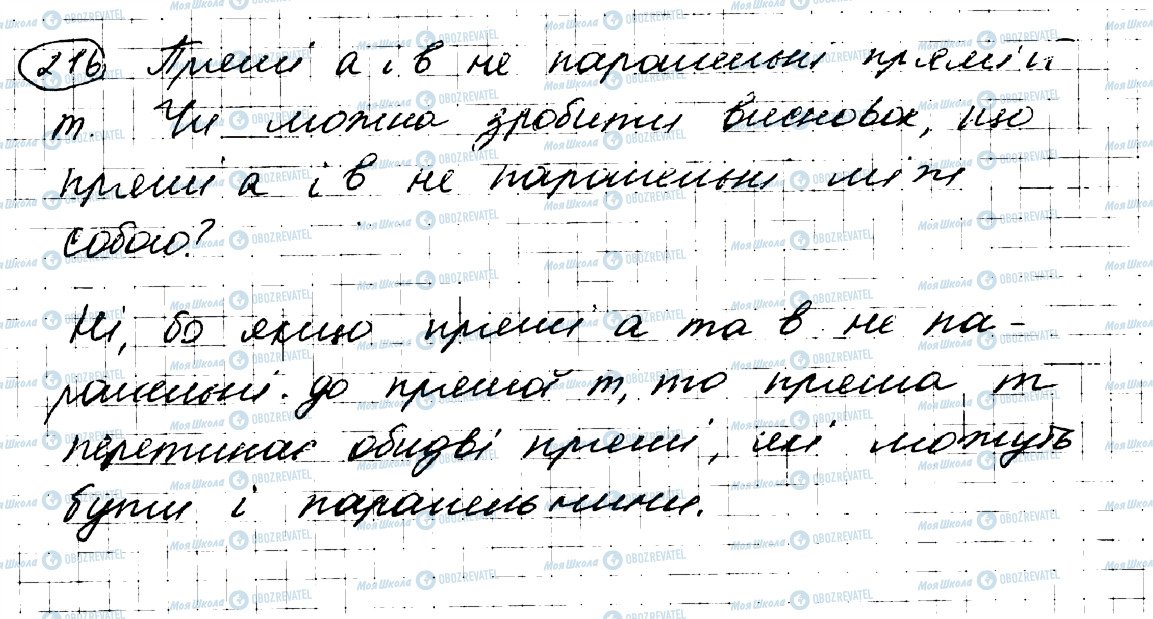 216. Прямі a і b не паралельні прямій
m. Чи можна зробити висновок, що
прямі a і b не паралельні між
собою?
Ні, бо якщо прямі a та b не па-
ралельні до прямої m, то пряма m
перетинає обидві прямі, які можуть
бути і паралельними.